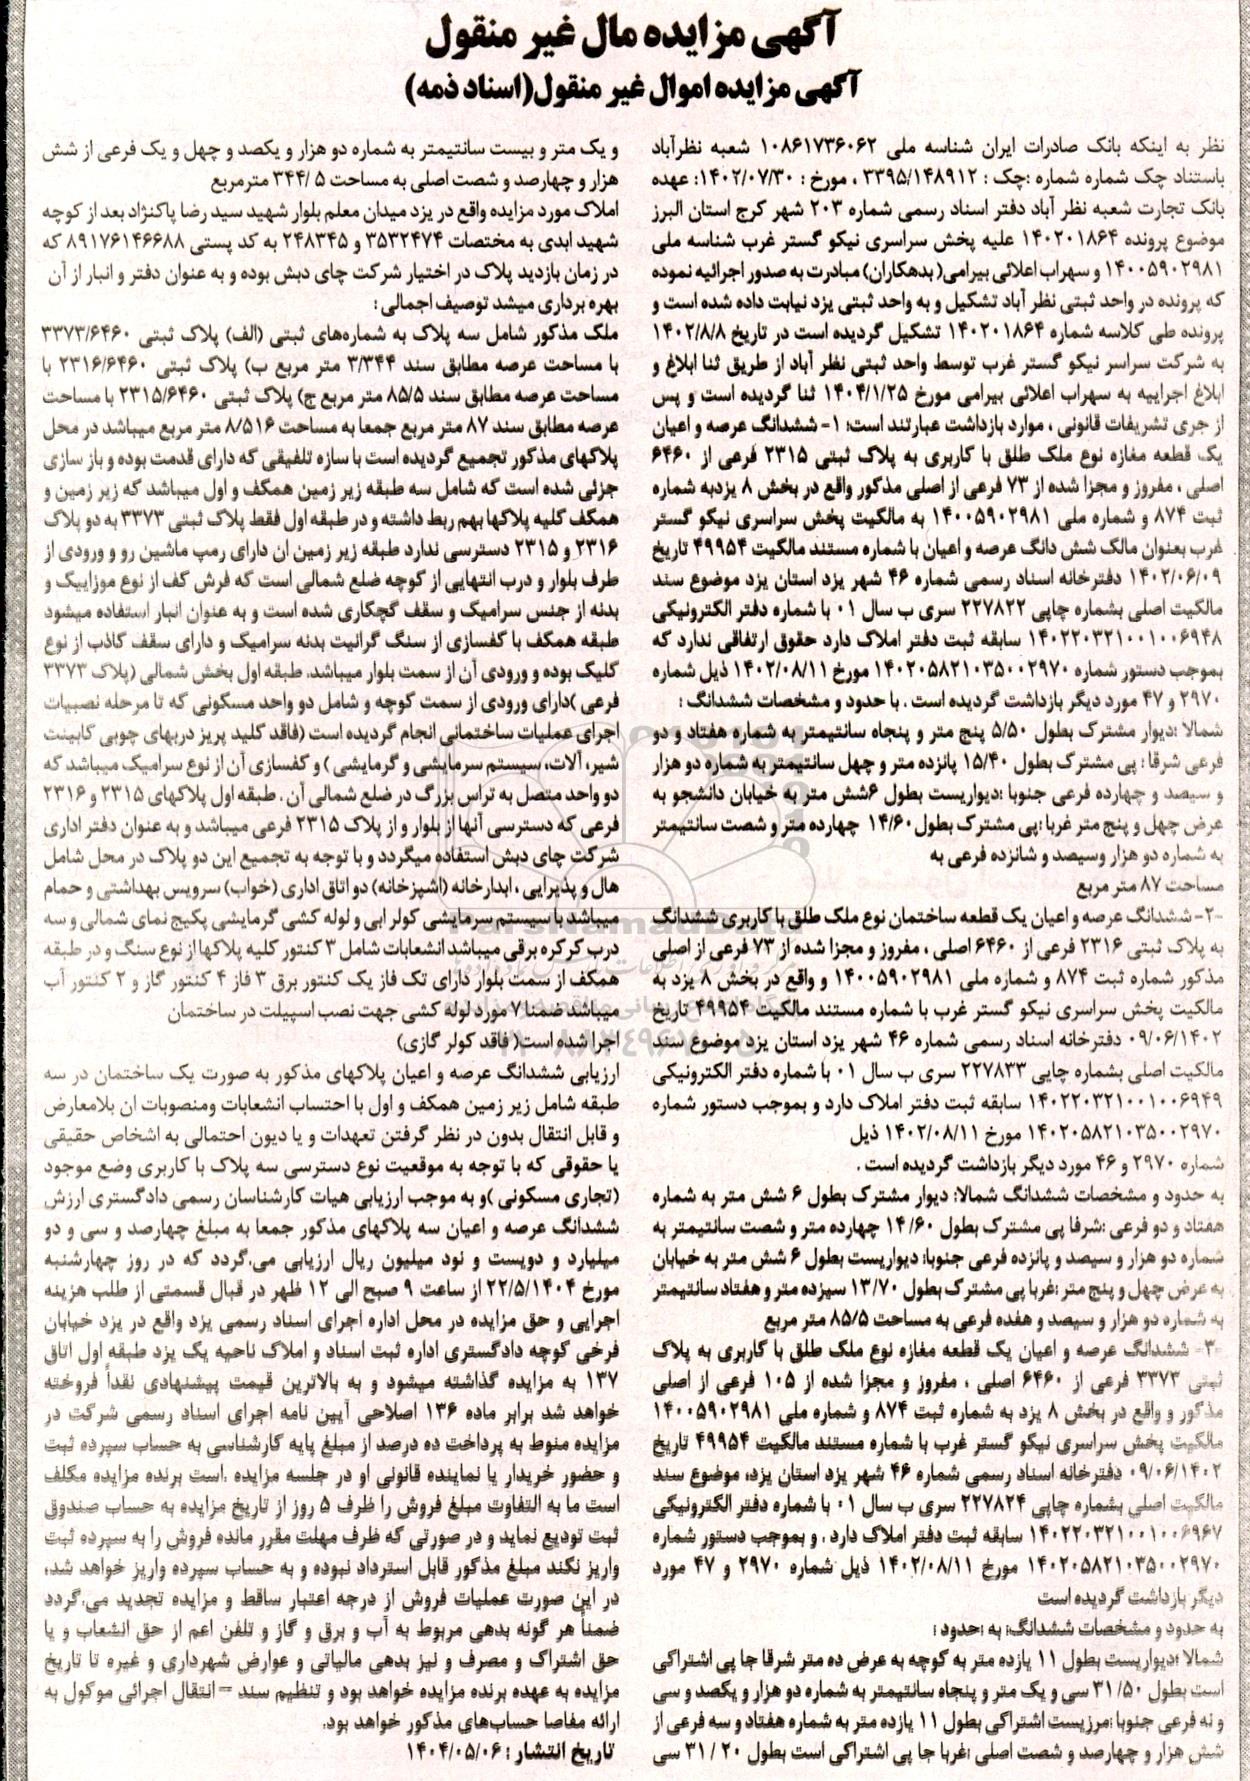 آگهی مزایده مال غیر منقول
آگهی مزایده اموال غیر منقول(اسناد ذمه)
نظر به اینکه بانک صادرات ایران شناسه ملی ۱۰۸۶۱۷۳۶۰۶۲ شعبه نظرآباد
باستناد چک شماره شماره :چک : ۳۳۹۵/۱۴۸۹۱۲ ، مورخ : ۱۴۰۲/۰۷/۳۰: عهده
بانک تجارت شعبه نظر آباد دفتر اسناد رسمی شماره ۲۰۳ شهر کرج استان البرز
موضوع پرونده ۱۴۰۲۰۱۸۶۴ علیه پخش سراسری نیکو گستر غرب شناسه ملی
۱۴۰۰۵۹۰۲۹۸۱ و سهراب اعلائی بیرامی( بدهکاران) مبادرت به صدور اجرائیه نموده
که پرونده در واحد ثبتی نظر آباد تشکیل و به واحد ثبتی یزد نیابت داده شده است و
پرونده طی کلاسه شماره ۱۴۰۲۰۱۸۶۴ تشکیل گردیده است در تاریخ ۱۴۰۲/۸/۸
به شرکت سراسر نیکو گستر غرب توسط واحد ثبتی نظر آباد از طریق ثنا ابلاغ و
ابلاغ اجراییه به سهراب اعلائی بیرامی مورخ ۱۴۰۴/۱/۲۵ ثنا گردیده است و پس
از جری تشریفات قانونی ، موارد بازداشت عبارتند است: ۱- ششدانگ عرصه و اعیان
یک قطعه مغازه نوع ملک طلق با کاربری به پلاک ثبتی ۲۳۱۵ فرعی از ۶۴۶۰
اصلی ، مفروز و مجزا شده از ۷۳ فرعی از اصلی مذکور واقع در بخش ۸ یزدبه شماره
ثبت ۸۷۴ و شماره ملی ۱۴۰۰۵۹۰۲۹۸۱ به مالکیت پخش سراسری نیکو گستر
غرب بعنوان مالک شش دانگ عرصه و اعیان با شماره مستند مالکیت ۴۹۹۵۴ تاریخ
۱۴۰۲/۰۶/۰۹ دفترخانه اسناد رسمی شماره ۴۶ شهر یزد استان یزد موضوع سند
مالکیت اصلی بشماره چاپی ۲۲۷۸۲۲ سری ب سال ۰۱ با شماره دفتر الکترونیکی
۱۴۰۲۲۰۳۲۱۰۰۱۰۰۶۹۴۸ سابقه ثبت دفتر املاک دارد حقوق ارتفاقی ندارد که
بموجب دستور شماره ۱۴۰۲۰۵۸۲۱۰۳۵۰۰۲۹۷۰ مورخ ۱۴۰۲/۰۸/۱۱ ذیل شماره
۲۹۷۰ و ۴۷ مورد دیگر بازداشت گردیده است . با حدود و مشخصات ششدانگ :
شمالا :دیوار مشترک بطول ۵/۵۰ پنج متر و پنجاه سانتیمتر به شماره هفتاد و دو
فرعی شرقا : پی مشترک بطول ۱۵/۴۰ پانزده متر و چهل سانتیمتر به شماره دو هزار
و سیصد و چهارده فرعی جنوبا :دیواریست بطول ۶شش متر به خیابان دانشجو به
عرض چهل و پنج متر غربا :پی مشترک بطول۱۴/۶۰ چهارده متر و شصت سانتیمتر
به شماره دو هزار وسیصد و شانزده فرعی به
مساحت ۸۷ متر مربع
-۲- ششدانگ عرصه و اعیان یک قطعه ساختمان نوع ملک طلق با کاربری ششدانگ
به پلاک ثبتی ۲۳۱۶ فرعی از ۶۴۶۰ اصلی ، مفروز و مجزا شده از ۷۳ فرعی از اصلی
مذکور شماره ثبت ۸۷۴ و شماره ملی ۱۴۰۰۵۹۰۲۹۸۱ و واقع در بخش ۸ یزد به
مالکیت پخش سراسری نیکو گستر غرب با شماره مستند مالکیت ۴۹۹۵۴ تاریخ
۰۹/۰۶/۱۴۰۲ دفترخانه اسناد رسمی شماره ۴۶ شهر یزد استان یزد موضوع سند
مالکیت اصلی بشماره چاپی ۲۲۷۸۳۳ سری ب سال ۰۱ با شماره دفتر الکترونیکی
۱۴۰۲۲۰۳۲۱۰۰۱۰۰۶۹۴۹ سابقه ثبت دفتر املاک دارد و بموجب دستور شماره
۱۴۰۲۰۵۸۲۱۰۳۵۰۰۲۹۷۰ مورخ ۱۴۰۲/۰۸/۱۱ ذیل
شماره ۲۹۷۰ و ۴۶ مورد دیگر بازداشت گردیده است .
به حدود و مشخصات ششدانگ شمالا: دیوار مشترک بطول ۶ شش متر به شماره
هفتاد و دو فرعی :شرقا پی مشترک بطول ۱۴/۶۰ چهارده متر و شصت سانتیمتر به
شماره دو هزار و سیصد و پانزده فرعی جنوبا: دیواریست بطول ۶ شش متر به خیابان
به عرض چهل و پنج متر :غربا پی مشترک بطول ۱۳/۷۰ سیزده متر و هفتاد سانتیمتر
به شماره دو هزار و سیصد و هفده فرعی به مساحت ۸۵/۵ متر مربع
-۳- ششدانگ عرصه و اعیان یک قطعه مغازه نوع ملک طلق با کاربری به پلاک
ثبتی ۳۳۷۳ فرعی از ۶۴۶۰ اصلی ، مفروز و مجزا شده از ۱۰۵ فرعی از اصلی
مذکور و واقع در بخش ۸ یزد به شماره ثبت ۸۷۴ و شماره ملی ۱۴۰۰۵۹۰۲۹۸۱
مالکیت پخش سراسری نیکو گستر غرب با شماره مستند مالکیت ۴۹۹۵۴ تاریخ
۰۹/۰۶/۱۴۰۲ دفترخانه اسناد رسمی شماره ۴۶ شهر یزد استان یزد، موضوع سند
مالکیت اصلی بشماره چاپی ۲۲۷۸۲۴ سری ب سال ۰۱ با شماره دفتر الکترونیکی
۱۴۰۲۲۰۳۲۱۰۰۱۰۰۶۹۶۷ سابقه ثبت دفتر املاک دارد . و بموجب دستور شماره
۱۴۰۲۰۵۸۲۱۰۳۵۰۰۲۹۷۰ مورخ ۱۴۰۲/۰۸/۱۱ ذیل شماره ۲۹۷۰ و ۴۷ مورد
دیگر بازداشت گردیده است
به حدود و مشخصات ششدانگ: به :حدود :
شمالا :دیواریست بطول ۱۱ یازده متر به کوچه به عرض ده متر شرقا جا پی اشتراکی
است بطول ۳۱/۵۰ سی و یک متر و پنجاه سانتیمتر به شماره دو هزار و یکصد و سی
و نه فرعی جنوبا :مرزیست اشتراکی بطول ۱۱ یازده متر به شماره هفتاد و سه فرعی از
شش هزار و چهارصد و شصت اصلی :غربا جا پی اشتراکی است بطول ۲۰ / ۳۱ سی
و یک متر و بیست سانتیمتر به شماره دو هزار و یکصد و چهل و یک فرعی از شش
هزار و چهارصد و شصت اصلی به مساحت ۳۴۴/۵ مترمربع
املاک مورد مزایده واقع در یزد میدان معلم بلوار شهید سید رضا پاکنژاد بعد از کوچه
شهید ابدی به مختصات ۳۵۳۲۴۷۴ و ۲۴۸۳۴۵ به کد پستی ۸۹۱۷۶۱۴۶۶۸۸ که
در زمان بازدید پلاک در اختیار شرکت چای دبش بوده و به عنوان دفتر و انبار از آن
بهره برداری میشد توصیف اجمالی :
ملک مذکور شامل سه پلاک به شماره‌های ثبتی (الف) پلاک ثبتی ۳۳۷۳/۶۴۶۰
با مساحت عرصه مطابق سند ۳/۳۴۴ متر مربع ب) پلاک ثبتی ۲۳۱۶/۶۴۶۰ با
مساحت عرصه مطابق سند ۸۵/۵ متر مربع ج) پلاک ثبتی ۲۳۱۵/۶۴۶۰ با مساحت
عرصه مطابق سند ۸۷ متر مربع جمعا به مساحت ۸/۵۱۶ متر مربع میباشد در محل
پلاکهای مذکور تجمیع گردیده است با سازه تلفیقی که دارای قدمت بوده و باز سازی
جزئی شده است که شامل سه طبقه زیر زمین همکف و اول میباشد که زیر زمین و
همکف کلیه پلاکها بهم ربط داشته و در طبقه اول فقط پلاک ثبتی ۳۳۷۳ به دو پلاک
۲۳۱۶ و ۲۳۱۵ دسترسی ندارد طبقه زیر زمین ان دارای رمپ ماشین رو و ورودی از
طرف بلوار و درب انتهایی از کوچه ضلع شمالی است که فرش کف از نوع موزاییک و
بدنه از جنس سرامیک و سقف گچکاری شده است و به عنوان انبار استفاده میشود
طبقه همکف با کفسازی از سنگ گرانیت بدنه سرامیک و دارای سقف کاذب از نوع
کلیک بوده و ورودی آن از سمت بلوار میباشد. طبقه اول بخش شمالی (پلاک ۳۳۷۳
فرعی )دارای ورودی از سمت کوچه و شامل دو واحد مسکونی که تا مرحله نصبیات
اجرای عملیات ساختمانی انجام گردیده است (فاقد کلید پریز دربهای چوبی کابینت
شیر، آلات، سیستم سرمایشی و گرمایشی ) و کفسازی آن از نوع سرامیک میباشد که
دو واحد متصل به تراس بزرگ در ضلع شمالی آن . طبقه اول پلاکهای ۲۳۱۵ و ۲۳۱۶
فرعی که دسترسی آنها از بلوار و از پلاک ۲۳۱۵ فرعی میباشد و به عنوان دفتر اداری
شرکت چای دبش استفاده میگردد و با توجه به تجمیع این دو پلاک در محل شامل
هال و پذیرایی ، ابدارخانه (اشپزخانه) دو اتاق اداری (خواب) سرویس بهداشتی و حمام
میباشد با سیستم سرمایشی کولر ابی و لوله کشی گرمایشی پکیج نمای شمالی و سه
درب کرکره برقی میباشد انشعابات شامل ۳ کنتور کلیه پلاکها از نوع سنگ و در طبقه
همکف از سمت بلوار دارای تک فاز یک کنتور برق ۳ فاز ۴ کنتور گاز و ۲ کنتور آب
میباشد ضمنا ۷ مورد لوله کشی جهت نصب اسپیلت در ساختمان
اجرا شده است( فاقد کولر گازی)
ارزیابی ششدانگ عرصه و اعیان پلاکهای مذکور به صورت یک ساختمان در سه
طبقه شامل زیر زمین همکف و اول با احتساب انشعابات ومنصوبات ان بلامعارض
و قابل انتقال بدون در نظر گرفتن تعهدات و یا دیون احتمالی به اشخاص حقیقی
یا حقوقی که با توجه به موقعیت نوع دسترسی سه پلاک با کاربری وضع موجود
(تجاری مسکونی )و به موجب ارزیابی هیات کارشناسان رسمی دادگستری ارزش
ششدانگ عرصه و اعیان سه پلاکهای مذکور جمعا به مبلغ چهارصد و سی و دو
میلیارد و دویست و نود میلیون ریال ارزیابی می.گردد که در روز چهارشنبه
مورخ ۲۲/۵/۱۴۰۴ از ساعت ۹ صبح الی ۱۲ ظهر در قبال قسمتی از طلب هزینه
اجرایی و حق مزایده در محل اداره اجرای اسناد رسمی یزد واقع در یزد خیابان
فرخی کوچه دادگستری اداره ثبت اسناد و املاک ناحیه یک یزد طبقه اول اتاق
۱۳۷ به مزایده گذاشته میشود و به بالاترین قیمت پیشنهادی نقداً فروخته
خواهد شد برابر ماده ۱۳۶ اصلاحی آیین نامه اجرای اسناد رسمی شرکت در
مزایده منوط به پرداخت ده درصد از مبلغ پایه کارشناسی به حساب سپرده ثبت
و حضور خریدار یا نماینده قانونی او در جلسه مزایده .است برنده مزایده مکلف
است ما به التفاوت مبلغ فروش را ظرف ۵ روز از تاریخ مزایده به حساب صندوق
ثبت تودیع نماید و در صورتی که ظرف مهلت مقرر مانده فروش را به سپرده ثبت
واریز نکند مبلغ مذکور قابل استرداد نبوده و به حساب سپرده واریز خواهد شد،
در این صورت عملیات فروش از درجه اعتبار ساقط و مزایده تجدید می.گردد
ضمناً هر گونه بدهی مربوط به آب و برق و گاز و تلفن اعم از حق انشعاب و یا
حق اشتراک و مصرف و نیز بدهی مالیاتی و عوارض شهرداری و غیره تا تاریخ
مزایده به عهده برنده مزایده خواهد بود و تنظیم سند – انتقال اجرائی موکول به
ارائه مفاصا حساب‌های مذکور خواهد بود.
تاریخ انتشار : ۱۴۰۴/۰۵/۰۶